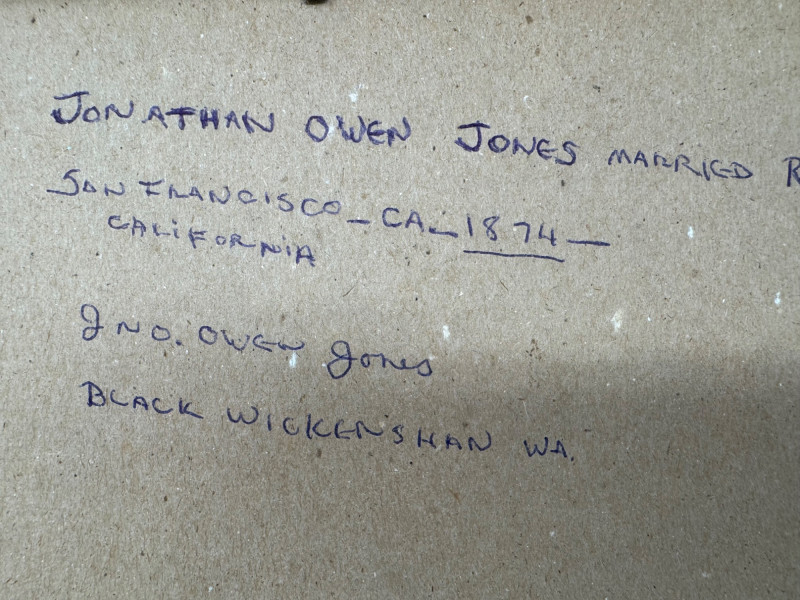 JONATHAN OWEN JONES MARRIED R
SAN FRANCISCO – CA – 1874 —
CALIFORNIA
JNO. OWEN Jones
BLACK WICKENSHAN WA.